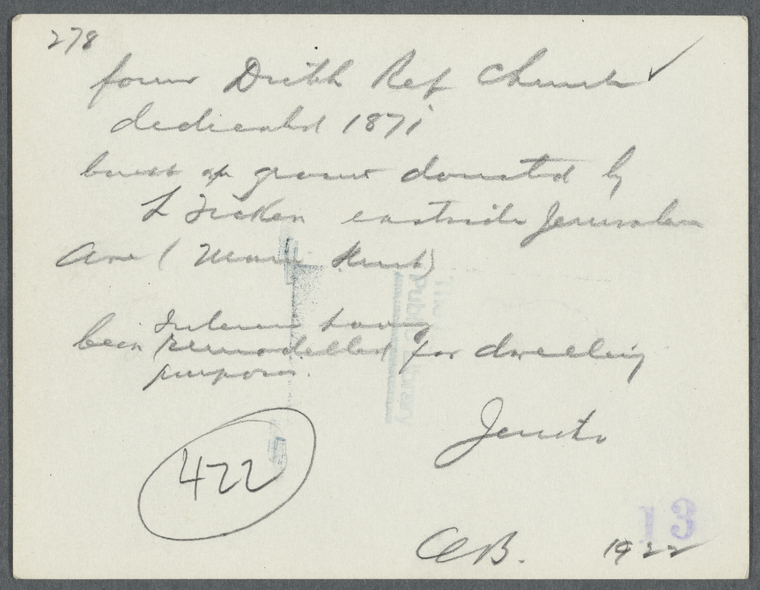 278
former Dutch Ref Church ✓
dedicated 1871
built on ground donated by
L Ficken eastside Jerusalem
Ave (Main Street)
Interior having
been remodelled for dwelling
purposes.
Jericho
422
The
Public Library
13
1922